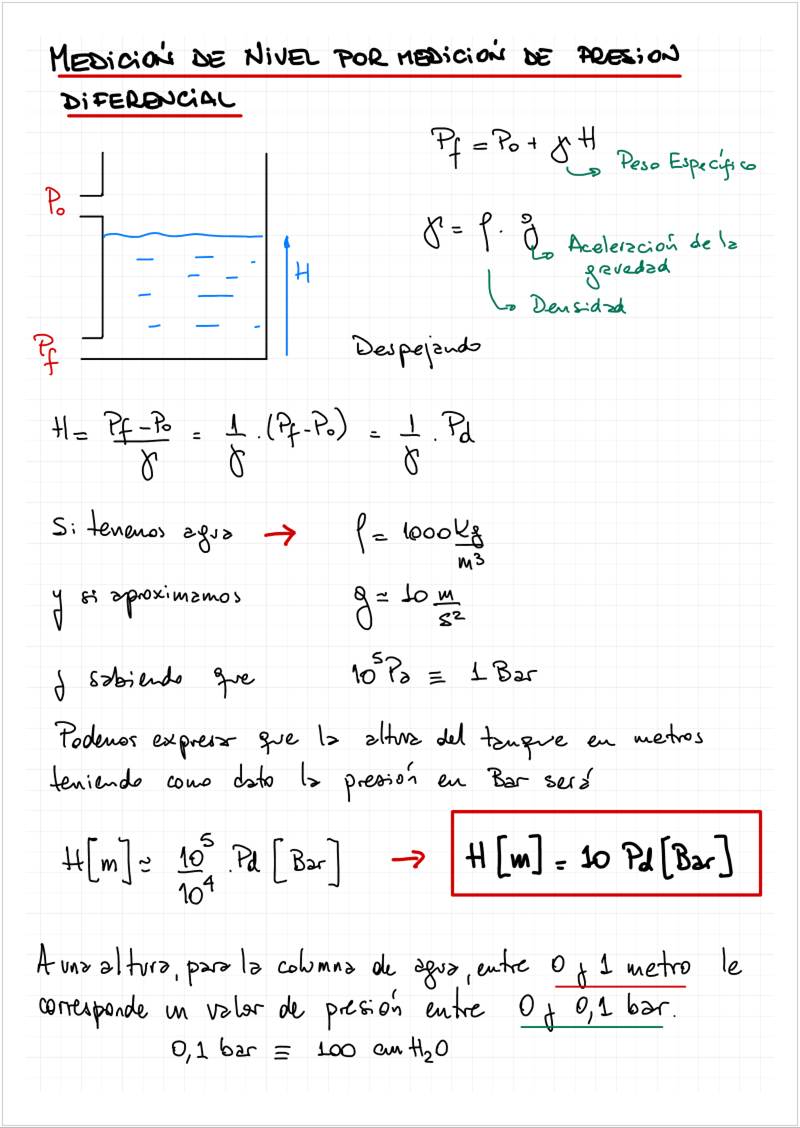 MEDICIÓN DE NIVEL POR MEDICIÓN DE PRESION
DIFERENCIAL
Pf = Po + γ H
Peso Específico
Po
γ = ρ · g
Aceleración de la
gravedad
H
Densidad
Pf
Despejando
H = (Pf - Po)/γ = 1/γ · (Pf - Po) = 1/γ · Pd
Si tenemos agua → ρ = 1000 Kg/m³
y si aproximamos g ≃ 10 m/s²
y sabiendo que 10⁵ Pa ≡ 1 Bar
Podemos expresar que la altura del tanque en metros
teniendo como dato la presión en Bar será
H[m] ≃ 10⁵/10⁴ · Pd [Bar] → H[m] = 10 Pd[Bar]
A una altura, para la columna de agua, entre 0 y 1 metro le
corresponde un valor de presión entre 0 y 0,1 bar.
0,1 bar ≡ 100 cm H₂O